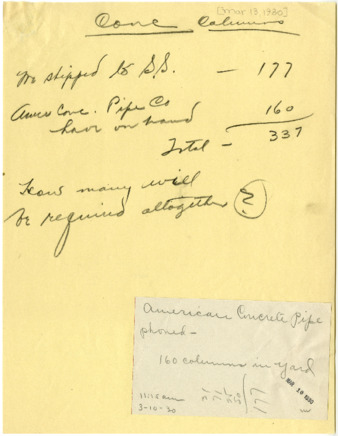 [Mar 13, 1930]
Conc Columns
No shipped to S.S. — 177
Amer Conc. Pipe Co
have on hand 160
Total — 337
How many will
be required altogether ?
American Concrete Pipe
phoned —
160 columns in yard
11:15 am
3-10-30
177
MAR 10 1930